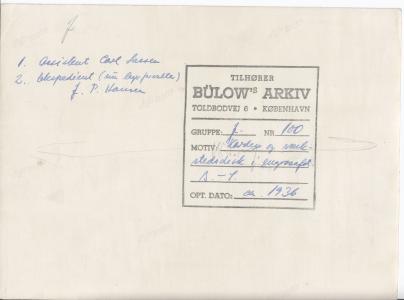 J
1. Assistent Carl Larsen
2. Ekspedient (nu
J. P. Hansen
TILHØRER
BÜLOW'S ARKIV
TOLDBODVEJ 6 • KØBENHAVN
GRUPPE: J. NR 100
MOTIV: og værk-
stedsdisk i
A.-S
OPT. DATO: ca. 1936